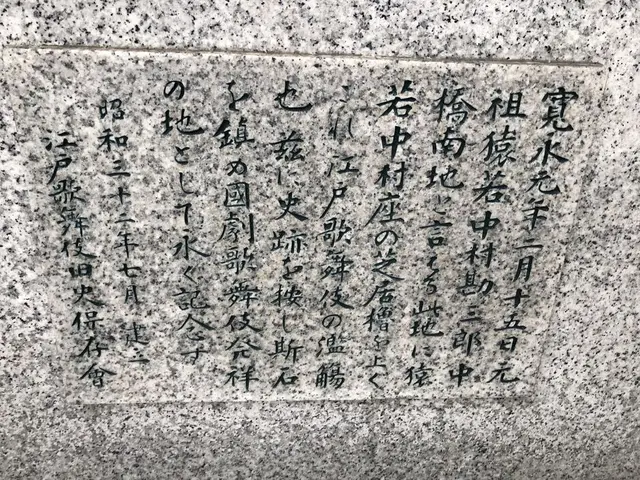 寛永元年二月十五日元
祖猿若中村勘三郎中
橋南地と言える此地に猿
若中村座の芝居櫓を上ぐ
これ江戸歌舞伎の濫觴
也茲に史跡を按し斯石
を鎮め國劇歌舞伎発祥
の地として永く記念す
昭和三十二年七月建之
江戸歌舞伎旧史保存會